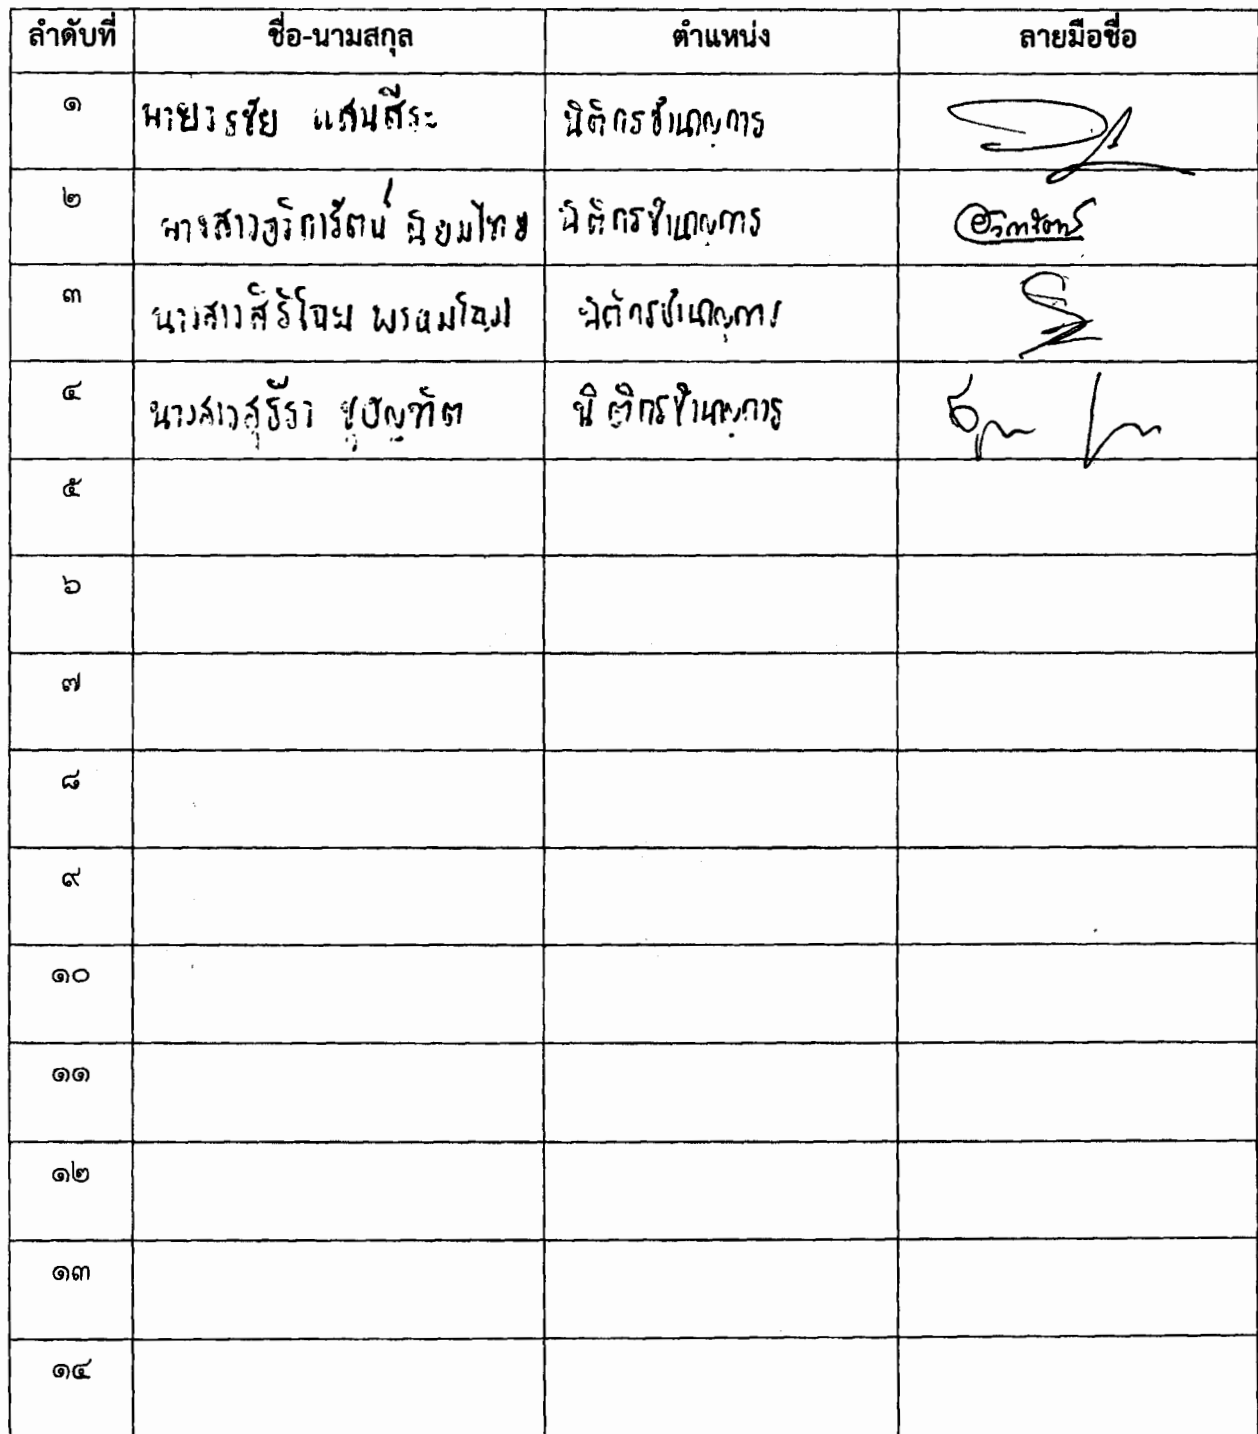 ลำดับที่ ชื่อ-นามสกุล ตำแหน่ง ลายมือชื่อ
๑ นายวรชัย แสนสีระ นิติกรชำนาญการ
๒ นางสาวอริการัตน์ นิยมไทย นิติกรชำนาญการ
๓ นางสาวสิริโฉม พรหมโฉม นิติกรชำนาญการ
๔ นางสาวสุธีรา ชูบัณฑิต นิติกรชำนาญการ
๕
๖
๗
๘
๙
๑๐
๑๑
๑๒
๑๓
๑๔